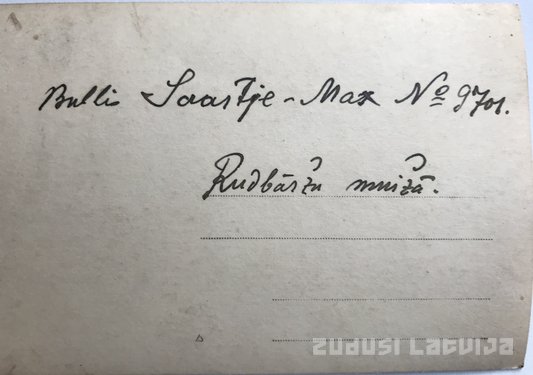 Bullis Saartje-Max No 9701.
Rudbāržu muižā.
ZUDUSI LATVIJA